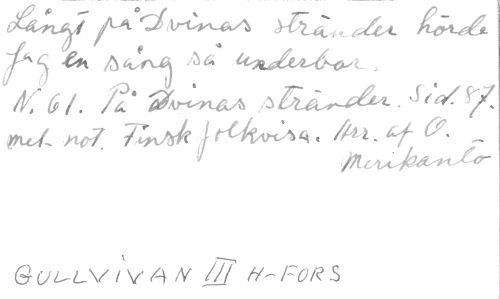 Långt på Dvinas stränder hörde
jag en sång så underbar.
N. 61. På Dvinas stränder. Sid. 87.
mel. not. Finsk folkvisa. Arr. af O.
Merikanto
GULLVIVAN III H-FORS